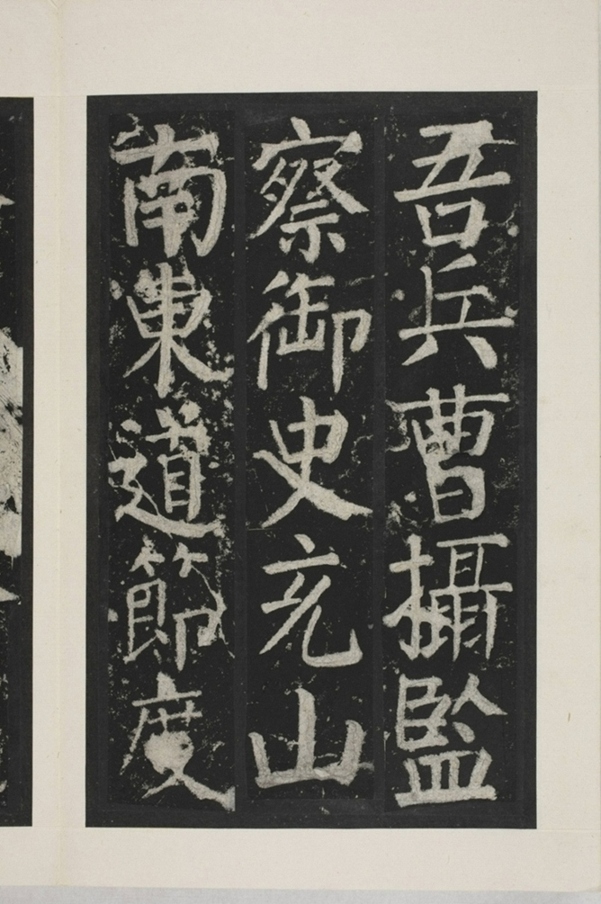 吾兵曹攝監
察御史充山
南東道節度